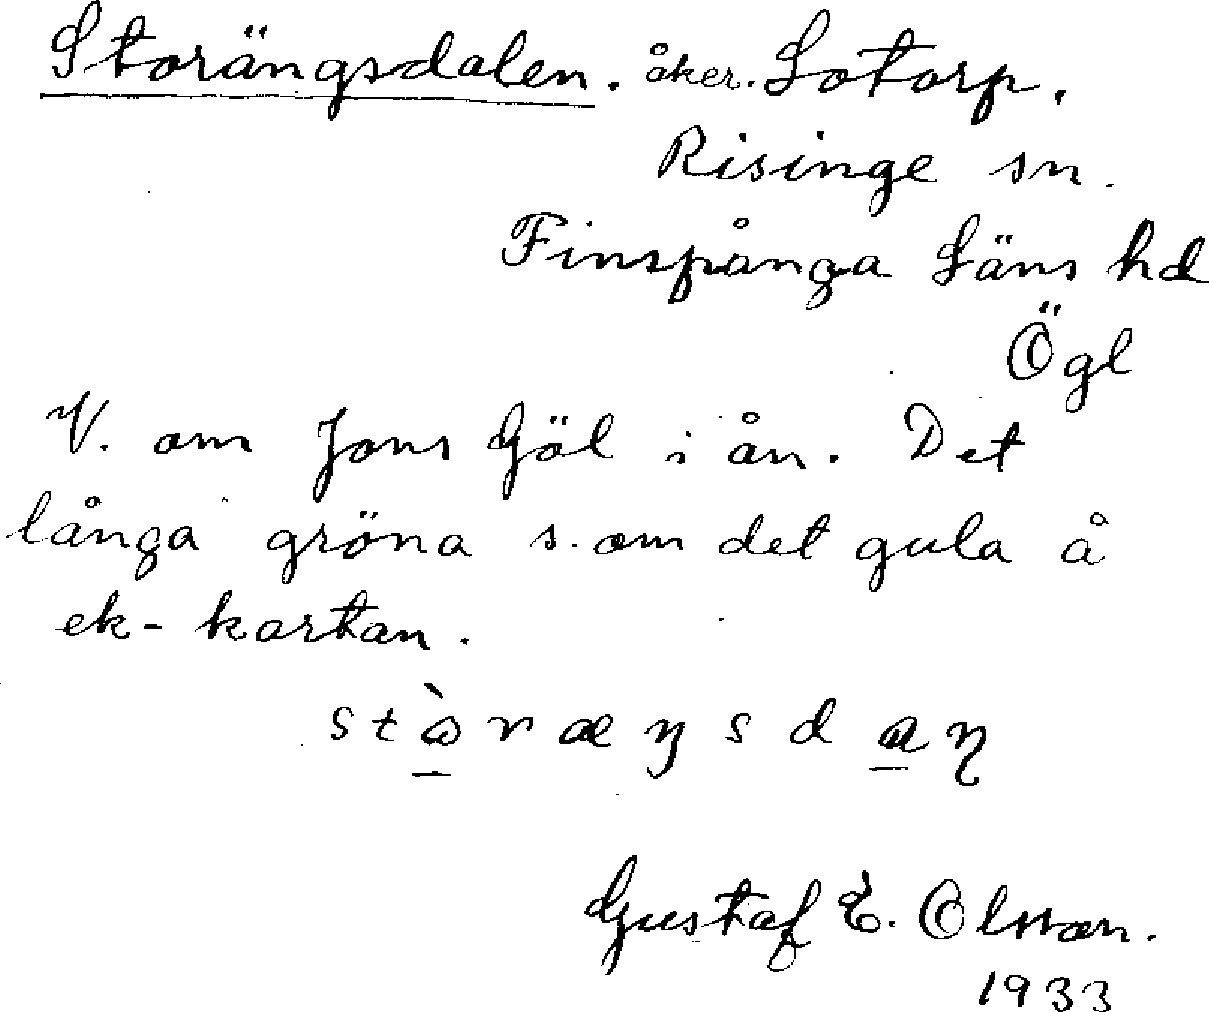 Storängsdalen. åker. Lotorp.
Risinge sn.
Finspånga Läns hd
Ögl
V. om Jons Göl i ån. Det
långa gröna s. om det gula å
ek-kartan.
stɷ̀ræŋsdaŋ
Gustaf E. Olsson.
1933